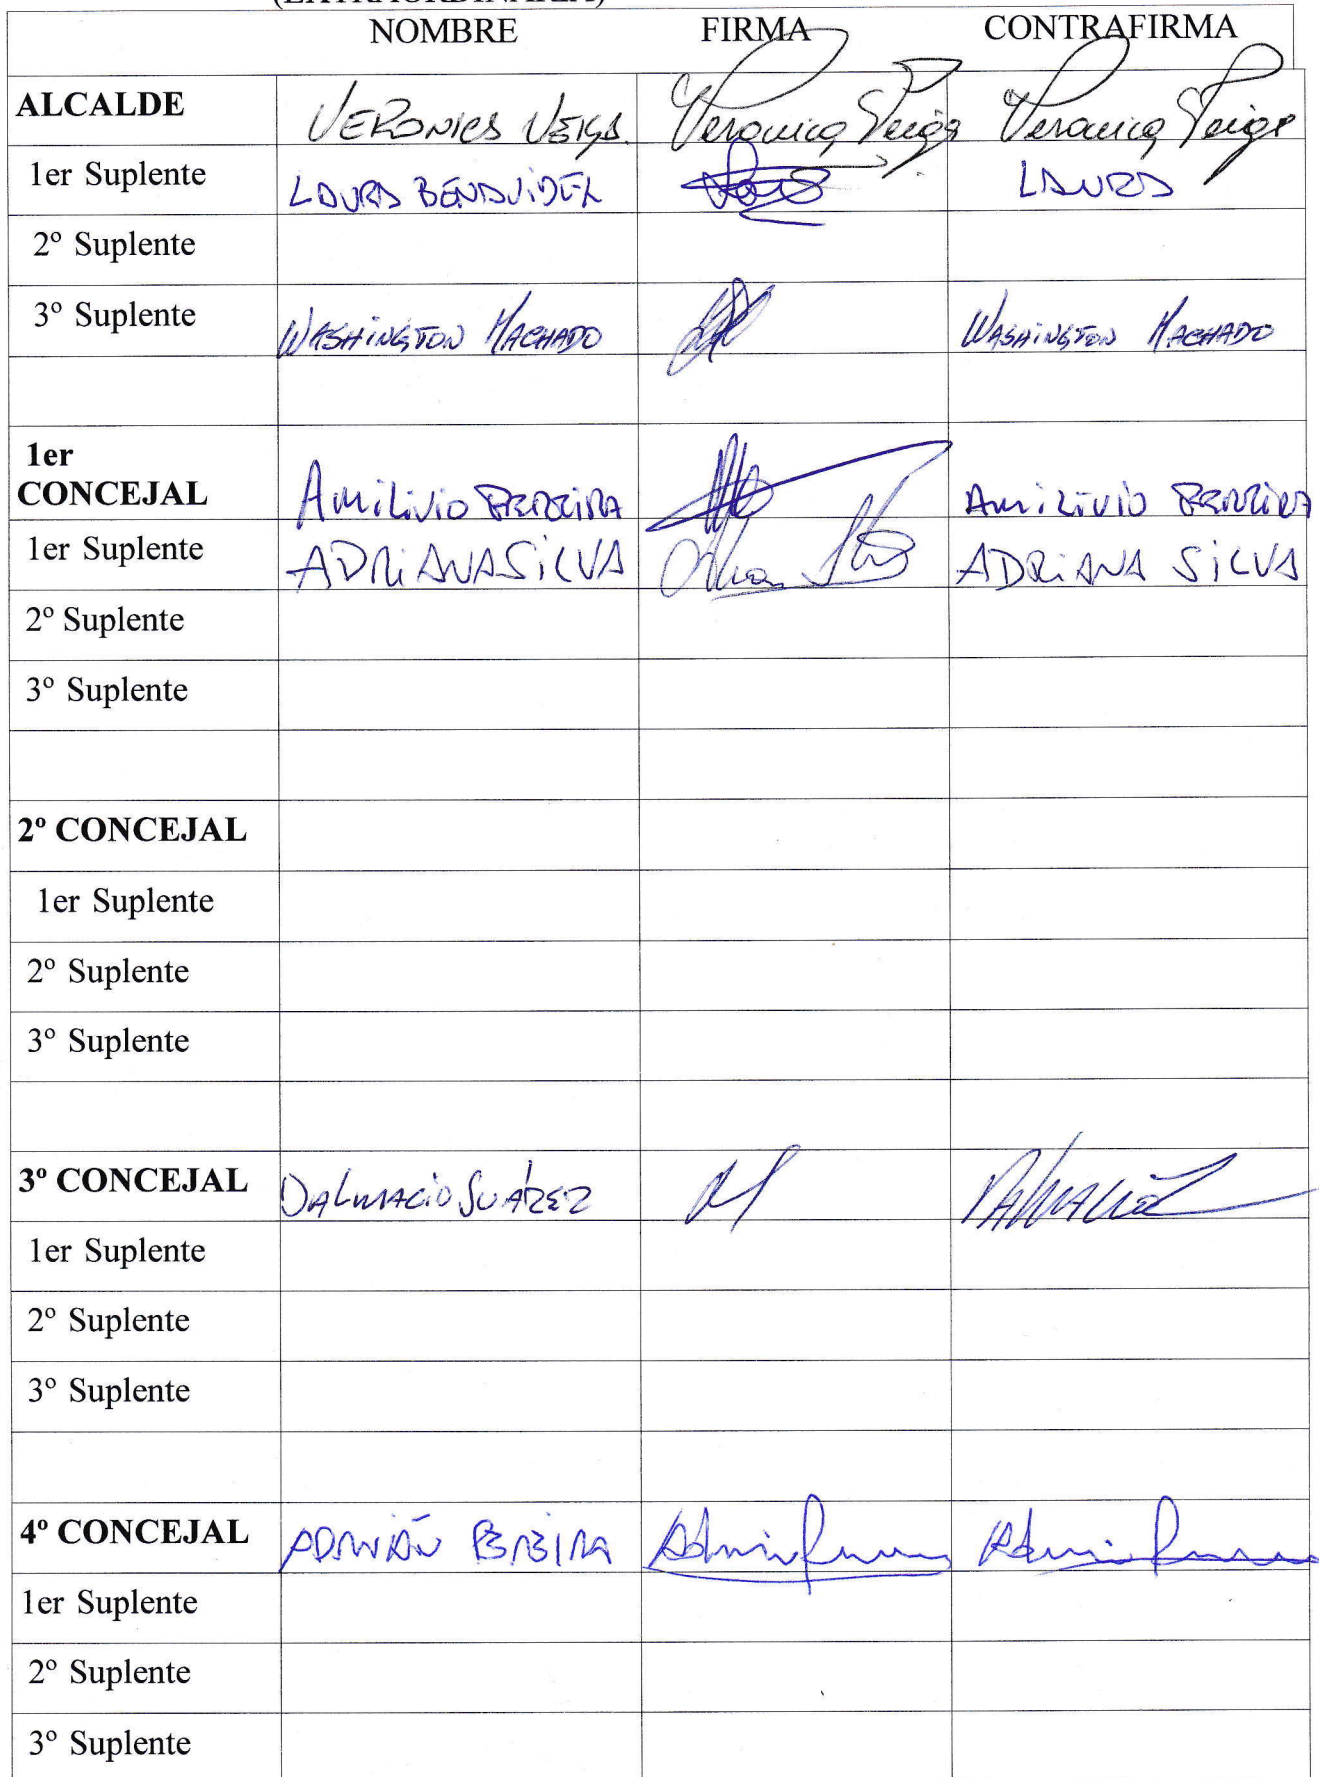 (EXTRAORDINARIA)
NOMBRE FIRMA CONTRAFIRMA
ALCALDE VERONICA VEIGA Veronica Veiga Veronica Veiga
1er Suplente LAURA BENAVIDEZ LAURA
2º Suplente
3º Suplente WASHINGTON MACHADO WASHINGTON MACHADO
1er
CONCEJAL Amilivio FERREIRA Amilivio FERREIRA
1er Suplente ADRIANA SILVA ADRIANA SILVA
2º Suplente
3º Suplente
2º CONCEJAL
1er Suplente
2º Suplente
3º Suplente
3º CONCEJAL DALMACIO SUÁREZ
1er Suplente
2º Suplente
3º Suplente
4º CONCEJAL ADRIÁN PEREIRA
1er Suplente
2º Suplente
3º Suplente